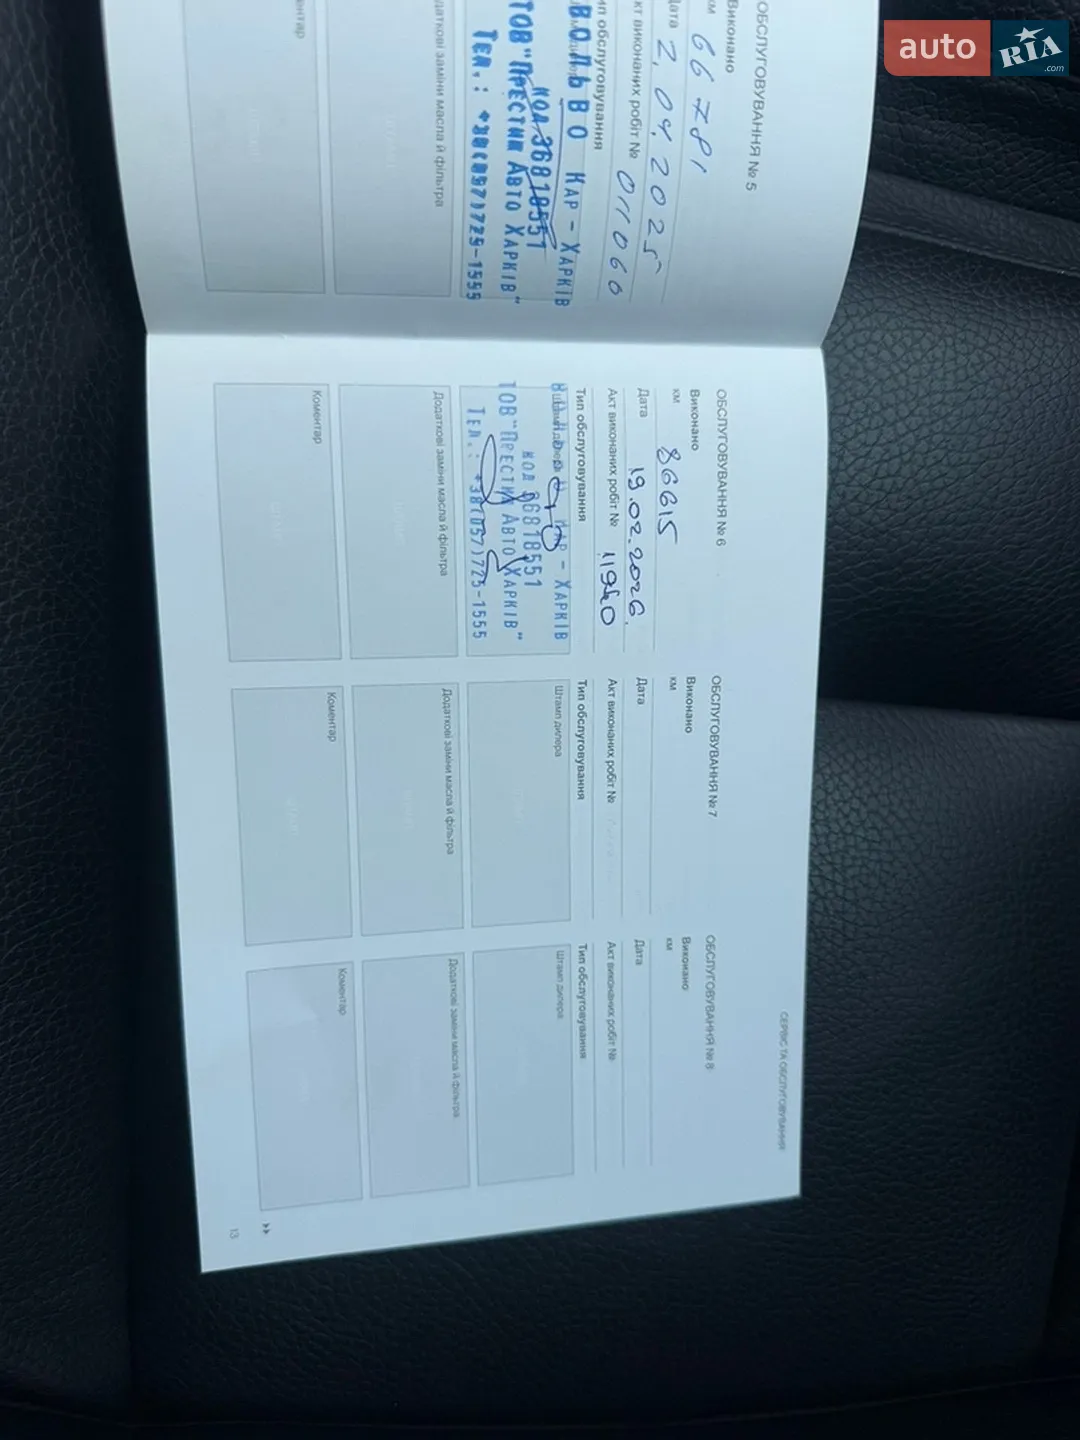 auto RIA
.com
ОБСЛУГОВУВАННЯ № 5
Виконано
км 66 781
Дата 2.04.2025
кт виконаних робіт № 011060
ип обслуговування
ВОЛЬВО КАР - ХАРКІВ
КОД 36818551
ТОВ "ПРЕСТИЖ АВТО ХАРКІВ"
ТЕЛ.: +38(057)725-1555
даткові заміни масла й фільтра
ентар
СЕРВІС ТА ОБСЛУГОВУВАННЯ
ОБСЛУГОВУВАННЯ № 6
Виконано
км 86615
Дата 19.02.2026.
Акт виконаних робіт № 11940
Тип обслуговування
КАР - ХАРКІВ
КОД 36818551
ТОВ "ПРЕСТИЖ АВТО ХАРКІВ"
ТЕЛ.: +38(057)725-1555
Додаткові заміни масла й фільтра
Коментар
ОБСЛУГОВУВАННЯ № 7
Виконано
км
Дата
Акт виконаних робіт №
Тип обслуговування
Штамп дилера
Додаткові заміни масла й фільтра
Коментар
ОБСЛУГОВУВАННЯ № 8
Виконано
км
Дата
Акт виконаних робіт №
Тип обслуговування
Штамп дилера
Додаткові заміни масла й фільтра
Коментар
13